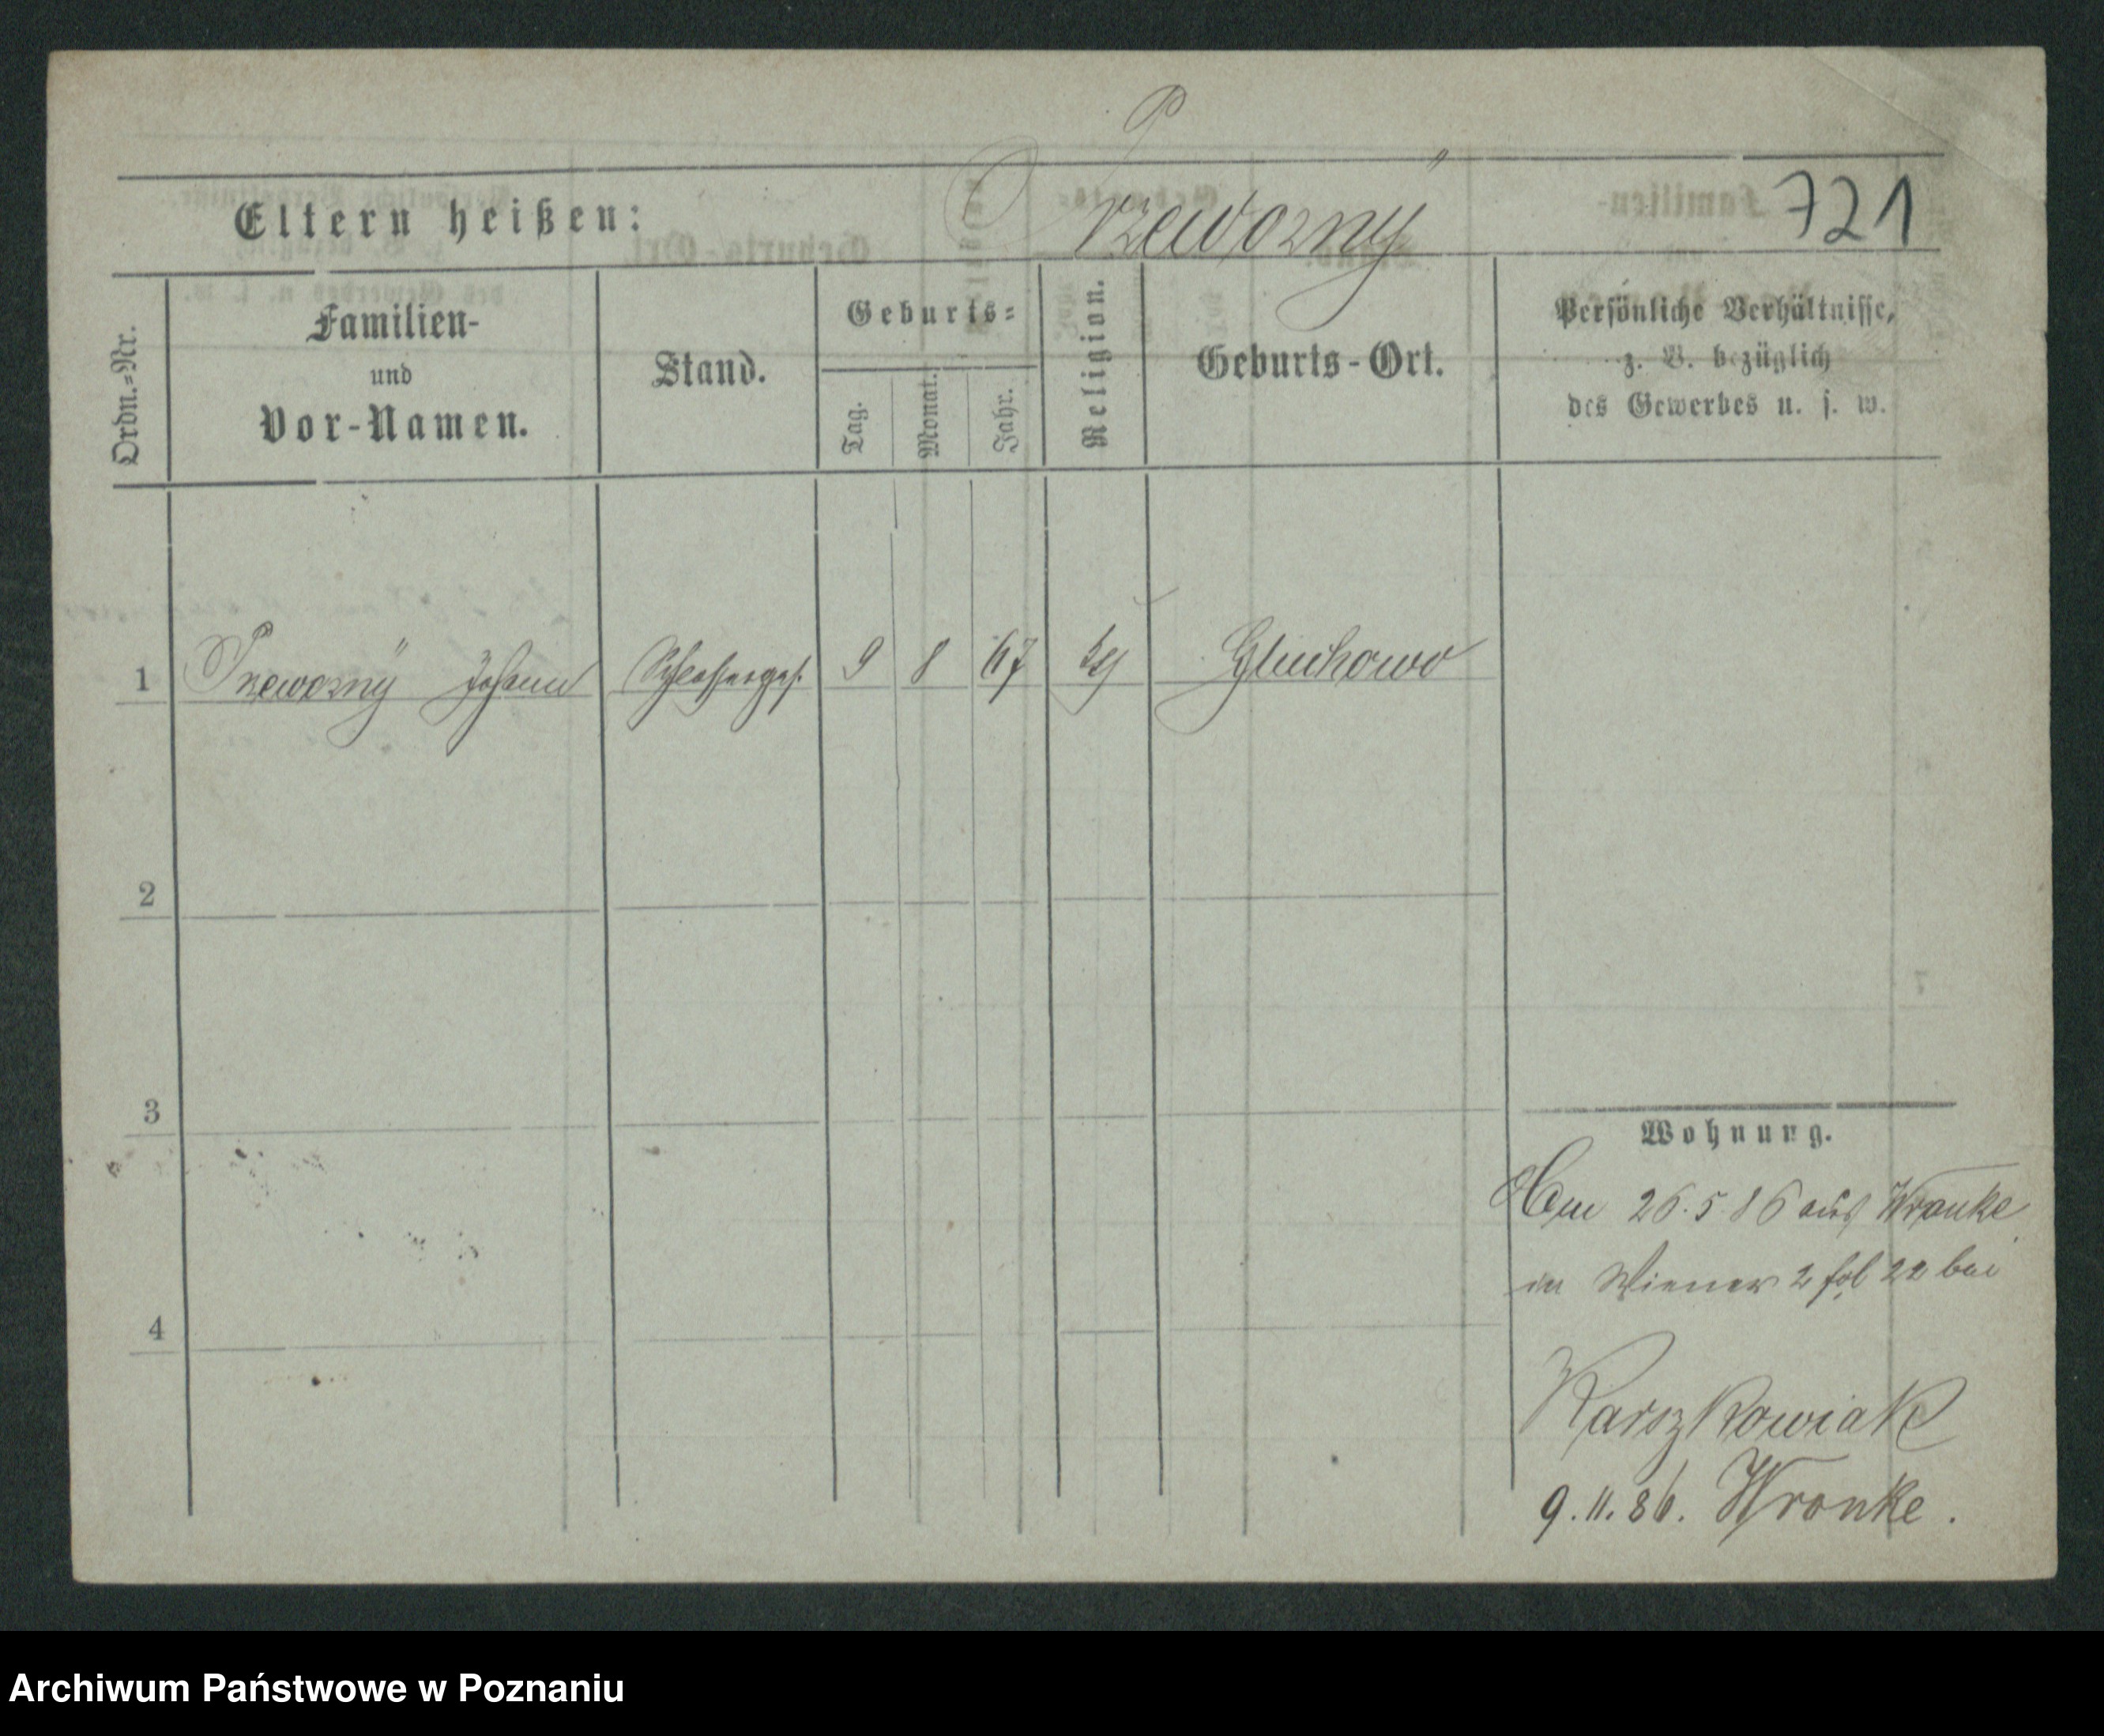 Przeworny
721
Eltern heißen:
Ordn.=Nr.
Familien-
und
Vor-Namen.
Stand.
Geburts=
Tag.
Monat.
Jahr.
Religion.
Geburts-Ort.
Persönliche Verhältnisse,
z. B. bezüglich
des Gewerbes u. s. w.
1 Przeworny Johann Schlosserges. 9 8 67 Gluchowo
2
3
4
Wohnung.
26.5.86 aus Wronke
in Wiener 2 fol 22 bei
Karszkowiak
9.11.86. Wronke.
Archiwum Państwowe w Poznaniu